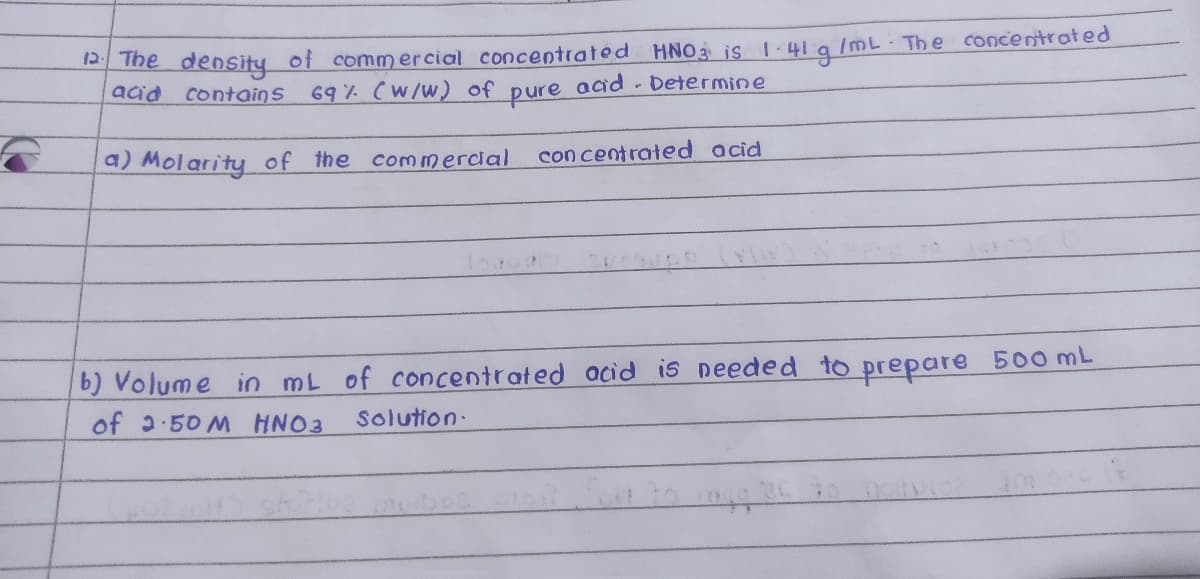 12. The density of commercial concentrated HNO3 is 1.41 g/mL. The concentrated
acid contains 69% (w/w) of pure acid. Determine
a) Molarity of the commercial concentrated acid
b) Volume in mL of concentrated acid is needed to prepare 500 mL
of 2.50 M HNO3 solution.